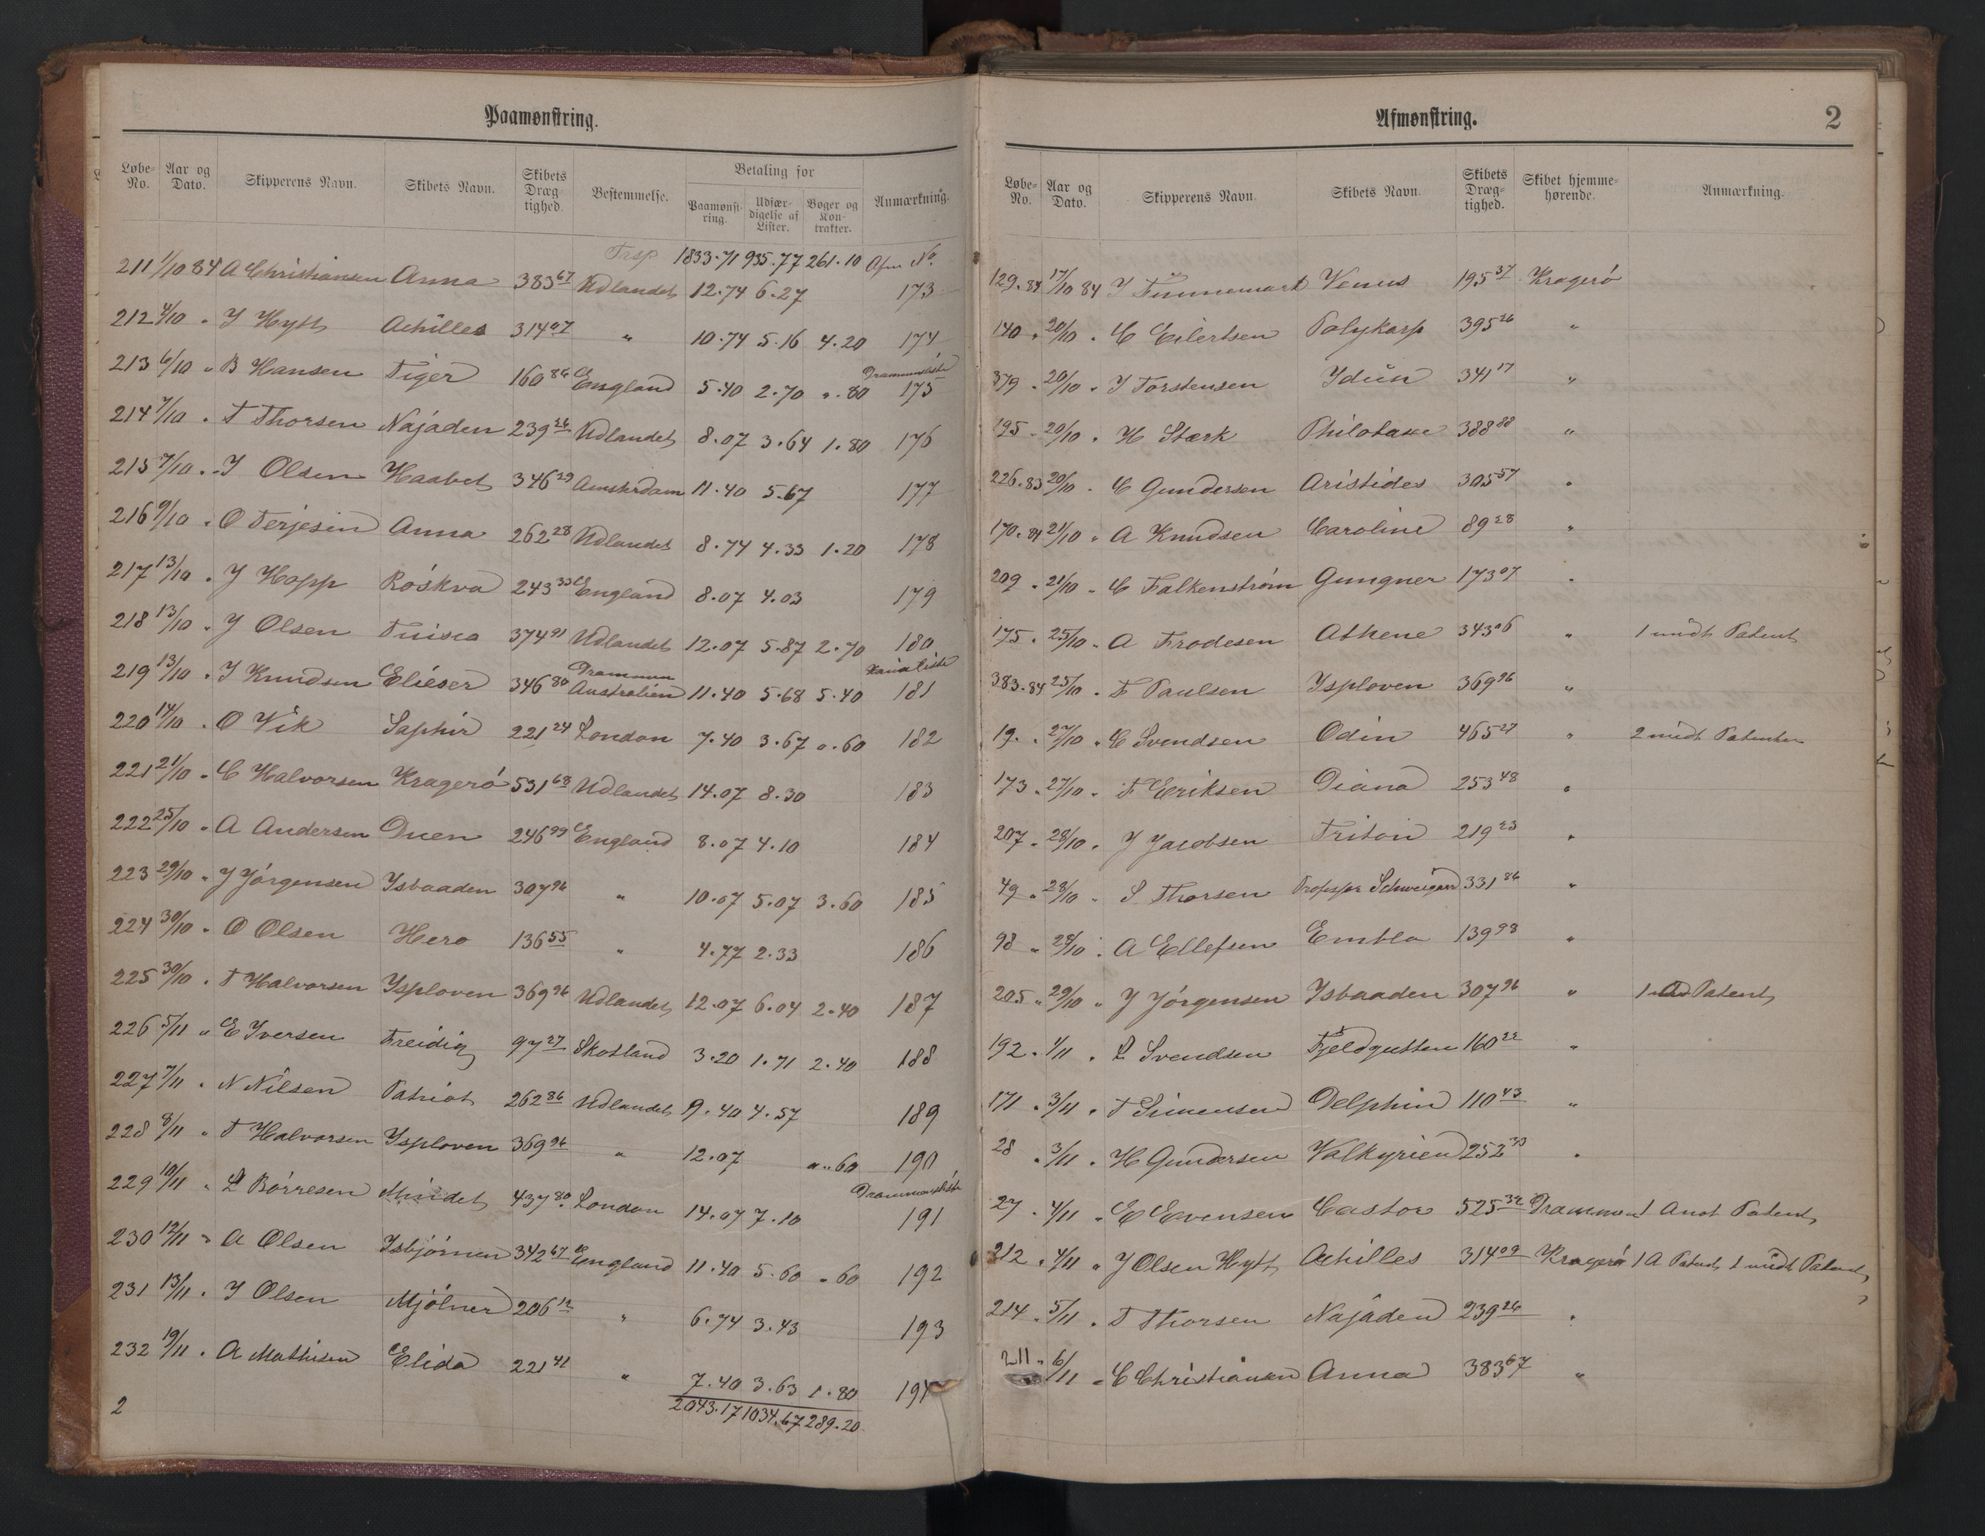 Paamønstring.
Løbe-No. Aar og Dato. Skipperens Navn. Skibets Navn. Skibets Dræg-tighed. Bestemmelse. Betaling for Paamønst-ring. Udfær-digelse af Lister. Bøger og Kon-trakter. Anmærkning.
Trsp 1833.71 935.77 261.10 Afm No.
211 1/10 84 A Christiansen Anna 383 67 Udlandet 12.74 6.27 173
212 4/10 " J Hytt Achilles 314 07 " 10.74 5.16 4.20 174
213 6/10 " B Hansen Tiger 160 86 England 5.40 2.70 ".80 Drammensliste 175
214 7/10 " T Thorsen Najaden 239 26 Udlandet 8.07 3.64 1.80 176
215 7/10 " J Olsen Haabet 346 29 Amsterdam 11.40 5.67 177
216 9/10 " O Terjesen Anna 262 28 Udlandet 8.74 4.33 1.20 178
217 13/10 " J Hopp Röskva 243 33 England 8.07 4.03 179
218 13/10 " J Olsen Tuisco 374 91 Udlandet 12.07 5.87 2.70 180
219 13/10 " J Knudsen Elieser 346 80 Drammen Australien 11.40 5.68 5.40 181
220 14/10 " O Vik Saphir 221 24 London 7.40 3.67 ".60 182
221 21/10 " C Halvorsen Kragerö 531 68 Udlandet 14.07 8.30 183
222 25/10 " A Andersen Duen 246 99 England 8.07 4.10 184
223 29/10 " J Jörgensen Isbaaden 307 96 " 10.07 5.07 3.60 185
224 30/10 " O Olsen Hero 136 55 " 4.77 2.33 186
225 30/10 " T Halvorsen Isploven 369 96 Udlandet 12.07 6.04 2.40 187
226 5/11 " E Iversen Freidig 97 27 Skotland 3.20 1.71 2.40 188
227 7/11 " N Nilsen Patriot 262 86 Udlandet 9.40 4.57 189
228 8/11 " T Halvorsen Isploven 369 96 " 12.07 ".60 190
229 10/11 " L Börresen Mindet 437 80 London 14.07 7.10 Drammensliste 191
230 12/11 " A Olsen Isbjörnen 342 67 England 11.40 5.60 ".60 192
231 13/11 " J Olsen Mjölner 206 12 " 6.74 3.43 193
232 19/11 " A Mathisen Elida 221 41 " 7.40 3.63 1.80 194
2 2043.17 1034.67 289.20
Afmønstring. 2
Løbe-No. Aar og Dato. Skipperens Navn. Skibets Navn. Skibets Dræg-tighed. Skibet hjemme-hørende. Anmærkning.
129.84 17/10 84 J Finnemark Venus 195 37 Kragerö
140 " 20/10 " C Eilertsen Polykarp 395 26 "
379 " 20/10 " J Torstensen Idun 341 17 "
195 " 20/10 " H Stærk Philotaxe 388 88 "
226.83 20/10 " C Gundersen Aristides 305 57 "
170.84 21/10 " A Knudsen Caroline 89 28 "
209 " 21/10 " C Falkenström Gungner 173 07 "
175 " 25/10 " A Frodesen Athene 343 06 " 1 midt Patent
383.84 25/10 " F Paulsen Isploven 369 96 "
19 " 27/10 " C Svendsen Odin 465 27 " 2 midt Patenter
173 " 27/10 " F Eriksen Diana 253 48 "
207 " 28/10 " J Jacobsen Triton 219 23 "
49 " 28/10 " S Thorsen Professor Schweigaard 331 86 "
98 " 28/10 " A Ellefsen Embla 139 98 "
205 " 29/10 " J Jörgensen Isbaaden 307 96 " 1 Patent
192 " 1/11 " L Svendsen Fjeldgutten 160 22 "
171 " 3/11 " T Simensen Delphin 110 43 "
28 " 3/11 " H Gundersen Valkyrien 252 30 "
27 " 4/11 " E Evensen Castor 525 32 Drammen 1 Patent
212 " 4/11 " J Olsen Hytt Achilles 314 09 Kragerö 1 A Patent 1 midt Patent
214 " 5/11 " T Thorsen Najaden 239 26 "
211 " 6/11 " C Christiansen Anna 383 67 "